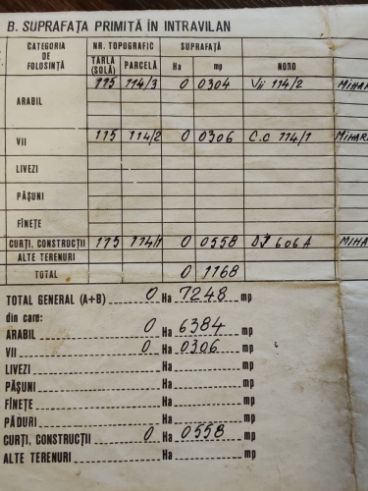 B. SUPRAFAȚA PRIMITĂ ÎN INTRAVILAN
CATEGORIA DE FOLOSINȚĂ NR. TOPOGRAFIC SUPRAFAȚĂ
TARLA (SOLĂ) PARCELĂ Ha mp NORD
ARABIL 115 114/3 0 0304 Vii 114/2
VII 115 114/2 0 0306 C.C 114/1
LIVEZI
PĂȘUNI
FÎNEȚE
CURȚI, CONSTRUCȚII 115 114/1 0 0558 DJ 606A
ALTE TERENURI
TOTAL 0 1168
TOTAL GENERAL (A+B) 0 Ha 7248 mp
din care:
ARABIL 0 Ha 6384 mp
VII 0 Ha 0306 mp
LIVEZI Ha mp
PĂȘUNI Ha mp
FÎNEȚE Ha mp
PĂDURI Ha mp
CURȚI, CONSTRUCȚII 0 Ha 0558 mp
ALTE TERENURI Ha mp